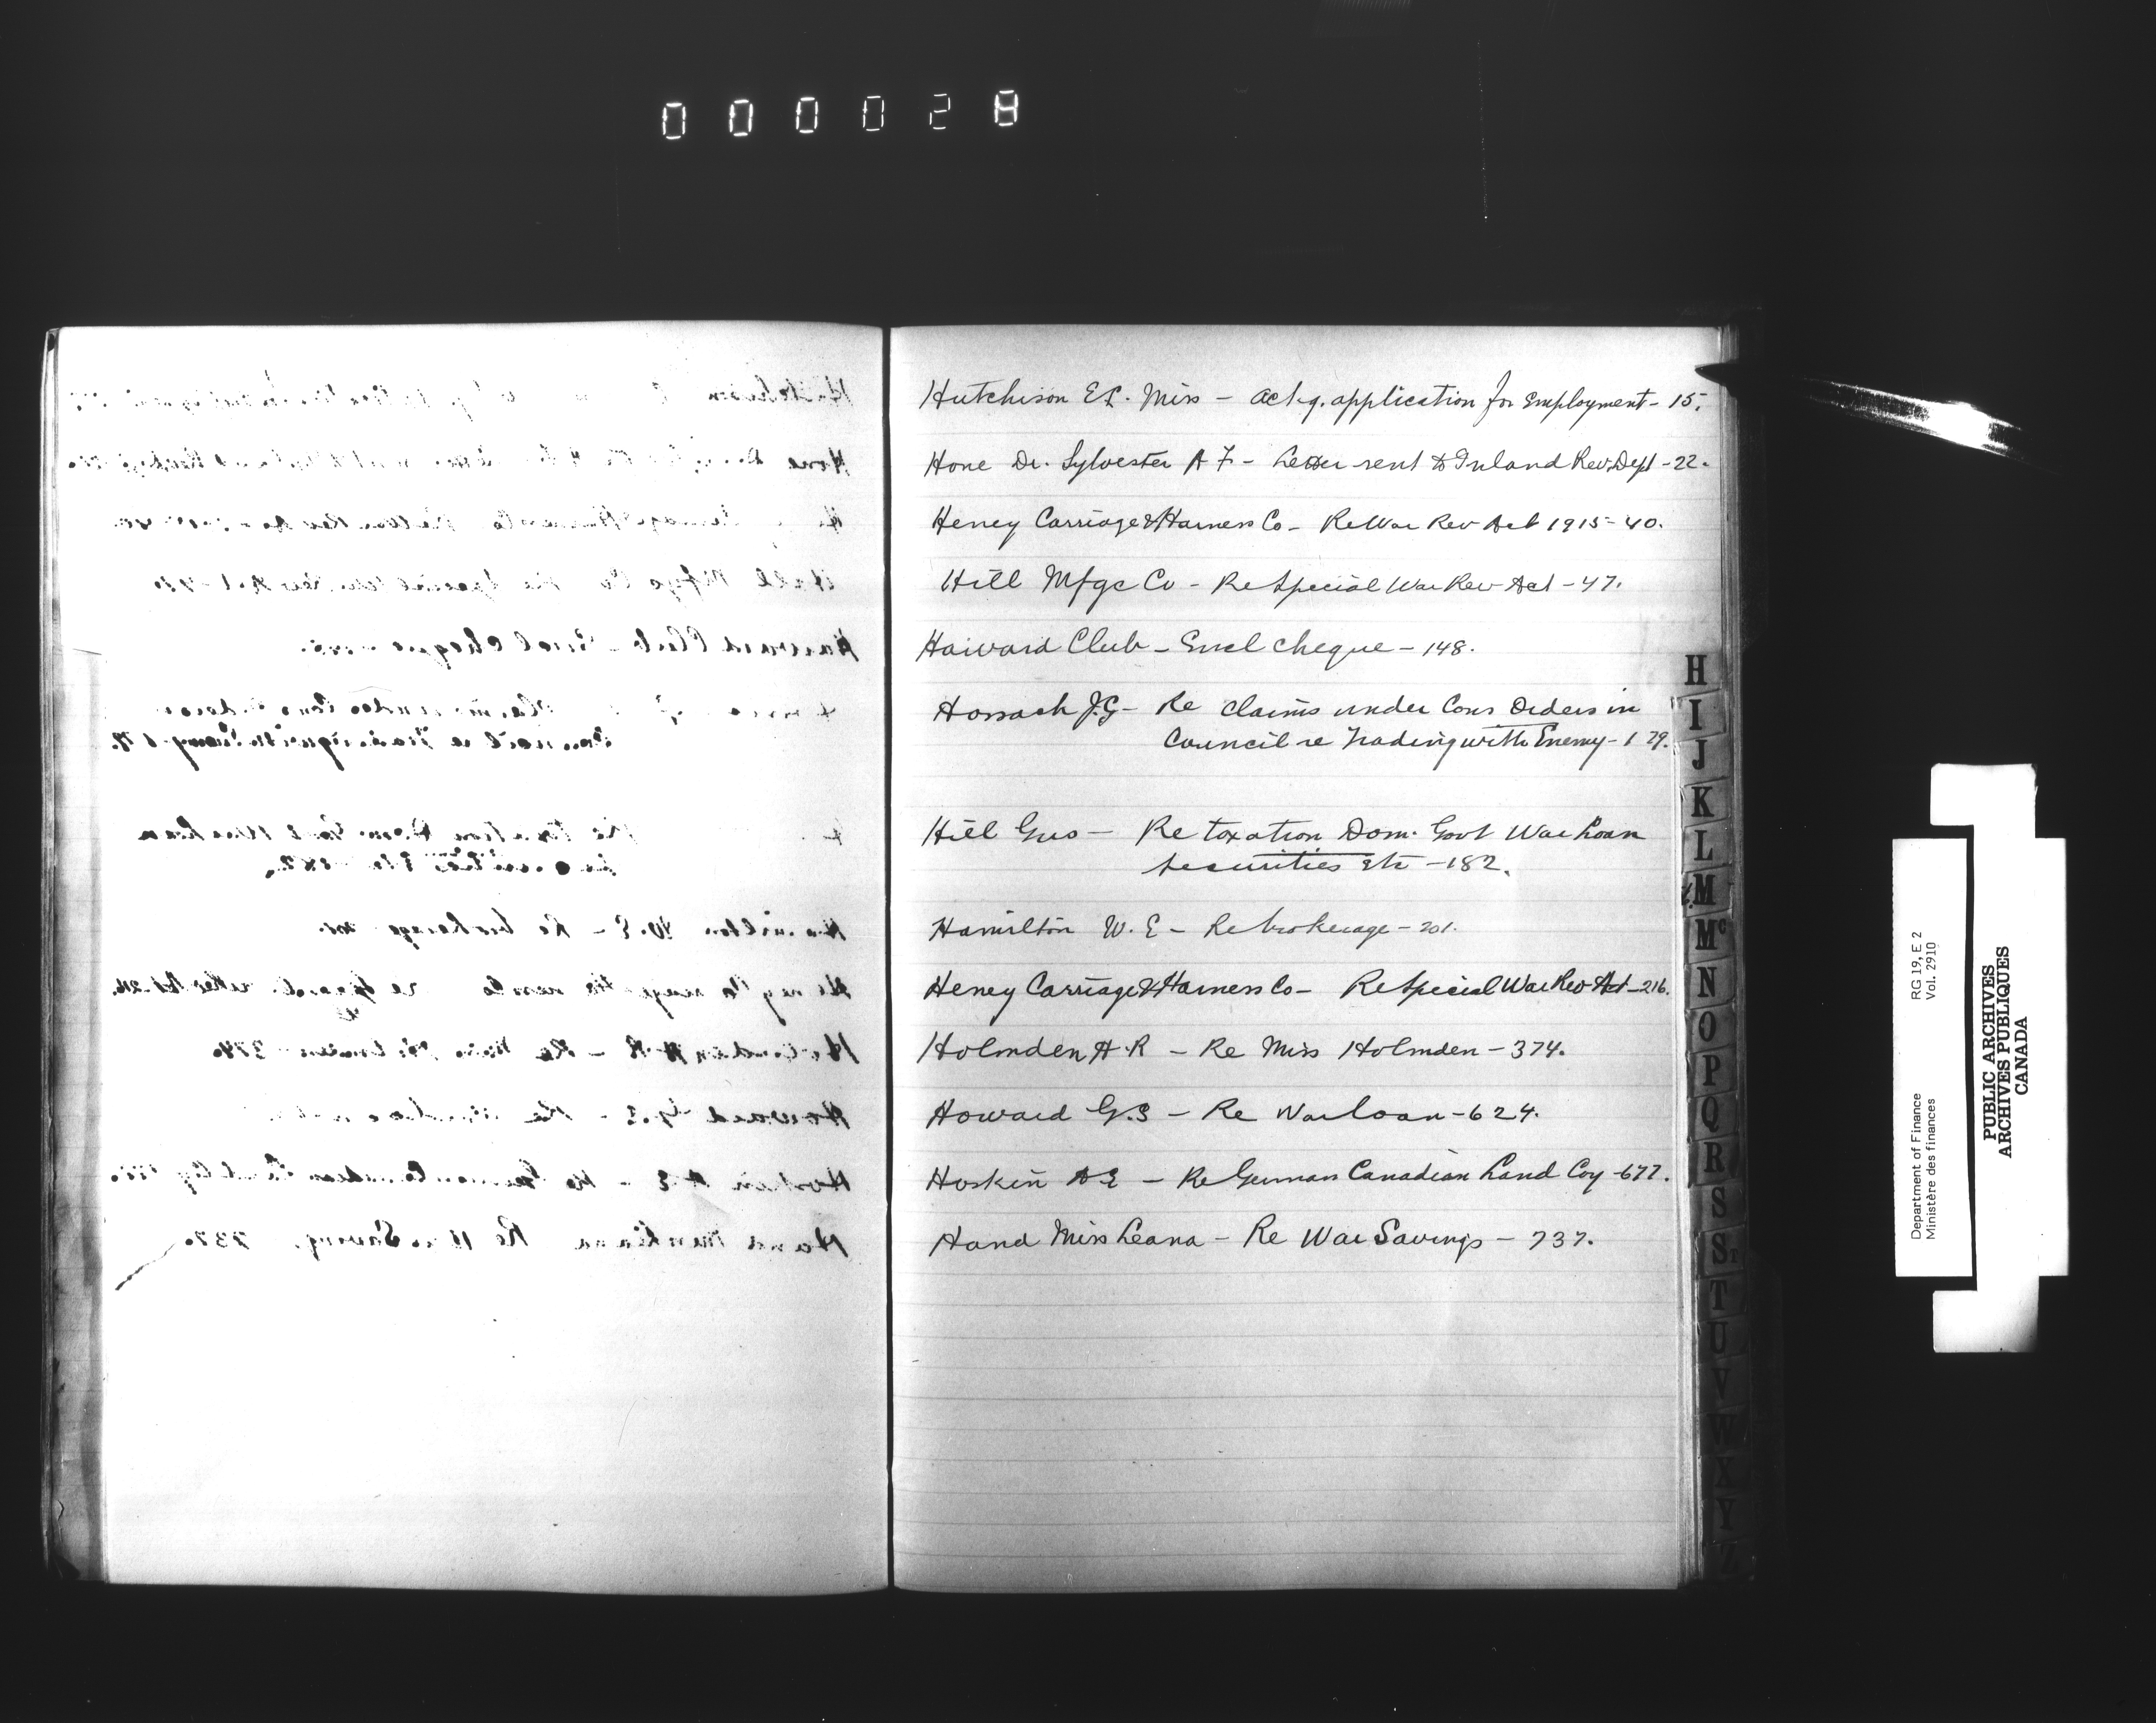 000028
Hutchison E L. Miss - ackg. application for Employment - 15.
Hone Dr. Sylvester A F - Letter sent to Inland Rev. Dept - 22.
Heney Carriage & Harness Co - Re War Rev Act 1915 - 40.
Hill Mfge Co - Re Special War Rev Act - 47.
Harvard Club - Encl cheque - 148.
J.G - Re claims under Cons Orders in
Council re Trading with Enemy - 179.
Hill Geo - Re taxation Dom. Govt War Loan
Securities Etc - 182.
Hamilton W. E - Re brokerage - 201.
Heney Carriage & Harness Co - Re Special War Rev Act - 216.
Holmden H. R - Re Miss Holmden - 374.
Howard G. S - Re War loan - 624.
Hoskin A E - Re German Canadian Land Coy - 677.
Hand Miss Leana - Re War Savings - 737.
H
I
J
K
L
M
Mc
N
O
P
Q
R
S
St
T
U
V
W
X
Y
Z
Department of Finance
Ministère des finances
RG 19, E 2
Vol. 2910
PUBLIC ARCHIVES
ARCHIVES PUBLIQUES
CANADA